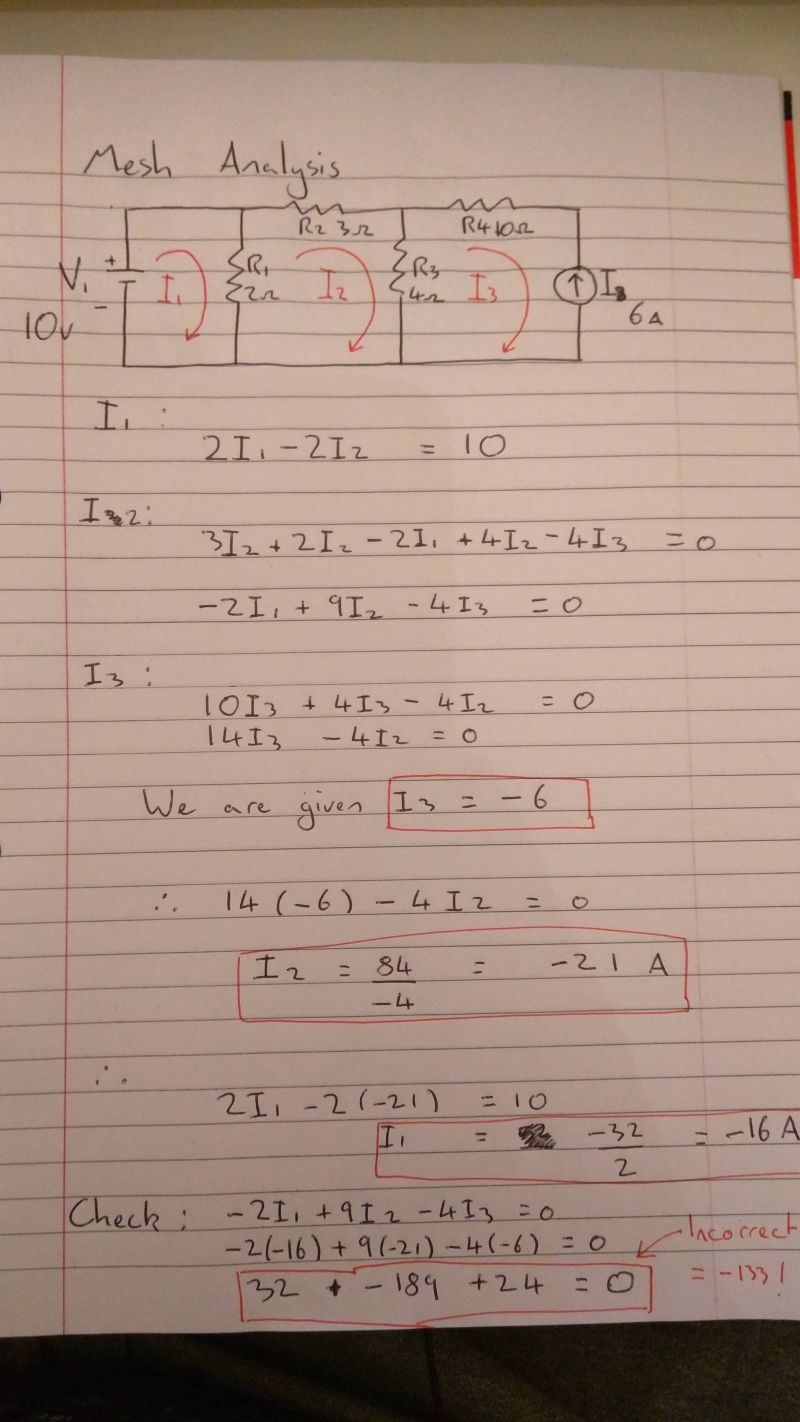 Mesh Analysis
R2 3Ω
R4 10Ω
V1
+
-
10v
I1
R1
2Ω
I2
R3
4Ω
I3
6A
I1 :
2I1 - 2I2 = 10
I2:
3I2 + 2I2 - 2I1 + 4I2 - 4I3 = 0
-2I1 + 9I2 - 4I3 = 0
I3 :
10I3 + 4I3 - 4I2 = 0
14I3 - 4I2 = 0
We are given I3 = -6
∴ 14(-6) - 4I2 = 0
I2 = 84/-4 = -21 A
∴
2I1 - 2(-21) = 10
I1 = -32/2 = -16 A
Check : -2I1 + 9I2 - 4I3 = 0
-2(-16) + 9(-21) - 4(-6) = 0
Incorrect
32 + -189 + 24 = 0
= -133!